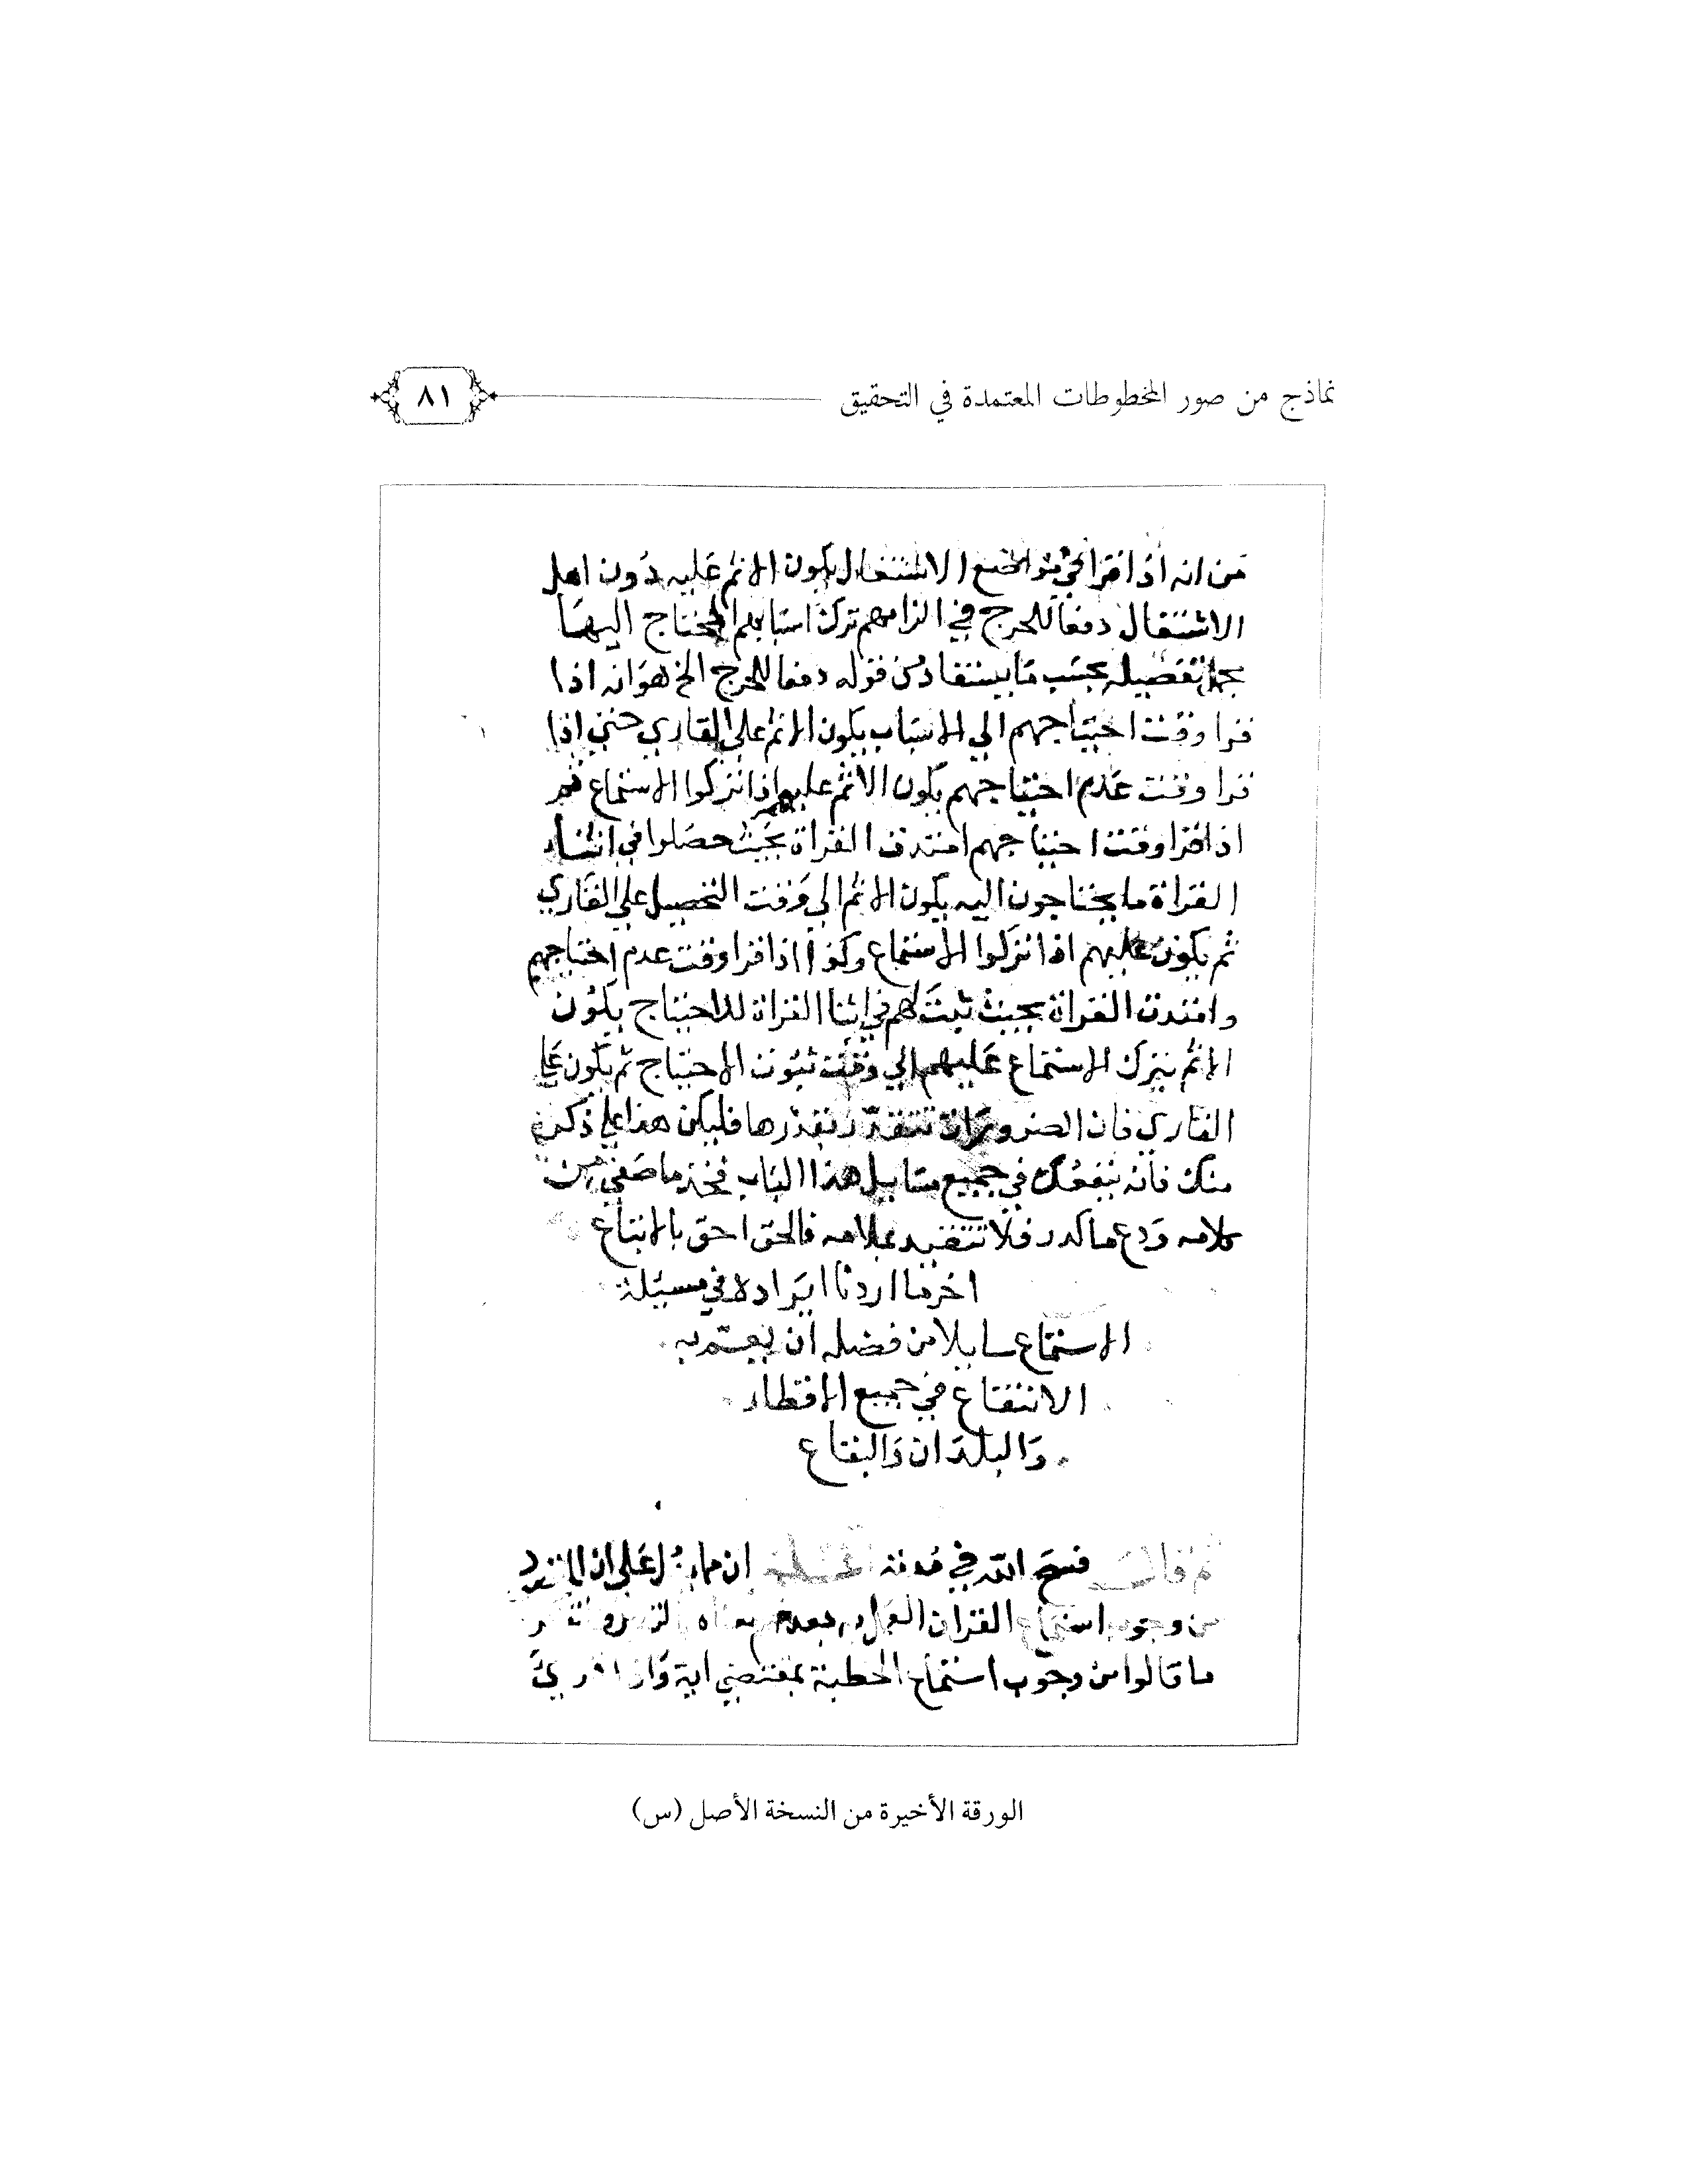 نماذج من صور المخطوطات المعتمدة في التحقيق
٨١
من انه اذا قرا في مواضع الاشتغال يكون الاثم عليه دون اهل
الاشتغال دفعا للحرج في الزامهم ترك اسبابهم المحتاج اليها
تفصيله بحسب ما يستفاد من قوله دفعا للحرج الخ هو انه اذا
قرا وقت احتياجهم الي الاسباب يكون الاثم علي القاري حتي اذا
قرا وقت عدم احتياجهم يكون الاثم عليهم اذا تركوا الاستماع ثم
اذا قرا وقت احتياجهم امتدت القراة بحيث حصلوا في اثناء
القراة ما يحتاجون اليه يكون الاثم الي وقت التحصيل علي القاري
ثم يكون عليهم اذا تركوا الاستماع وكذا اذا قرا وقت عدم احتياجهم
وامتدت القراة بحيث ثبت لهم في اثنا القراة للاحتياج يكون
الاثم بترك الاستماع عليهم الي وقت ثبوت الاحتياج ثم يكون علي
القاري فان الضرورات تتقدر بقدرها فليكن هذا علي ذكر
منك فانه ينفعك في جميع مسايل هذا الباب فخذ ما صفي من
كلامه ودع ما كدر فلا تتقيد بكلامه فالحق احق بالاتباع
اخر ما اردنا ايراده في مسيلة
الاستماع سايلا من فضله ان يعم به
الانتفاع في جميع الاقطار
والبلدان والبقاع
ثم قال فسح الله في مدته ان مما يدل علي ان
من وجوب استماع القران
ما قالوا من وجوب استماع الخطبة بمقتضي اية واذا قري
الورقة الأخيرة من النسخة الأصل (س)